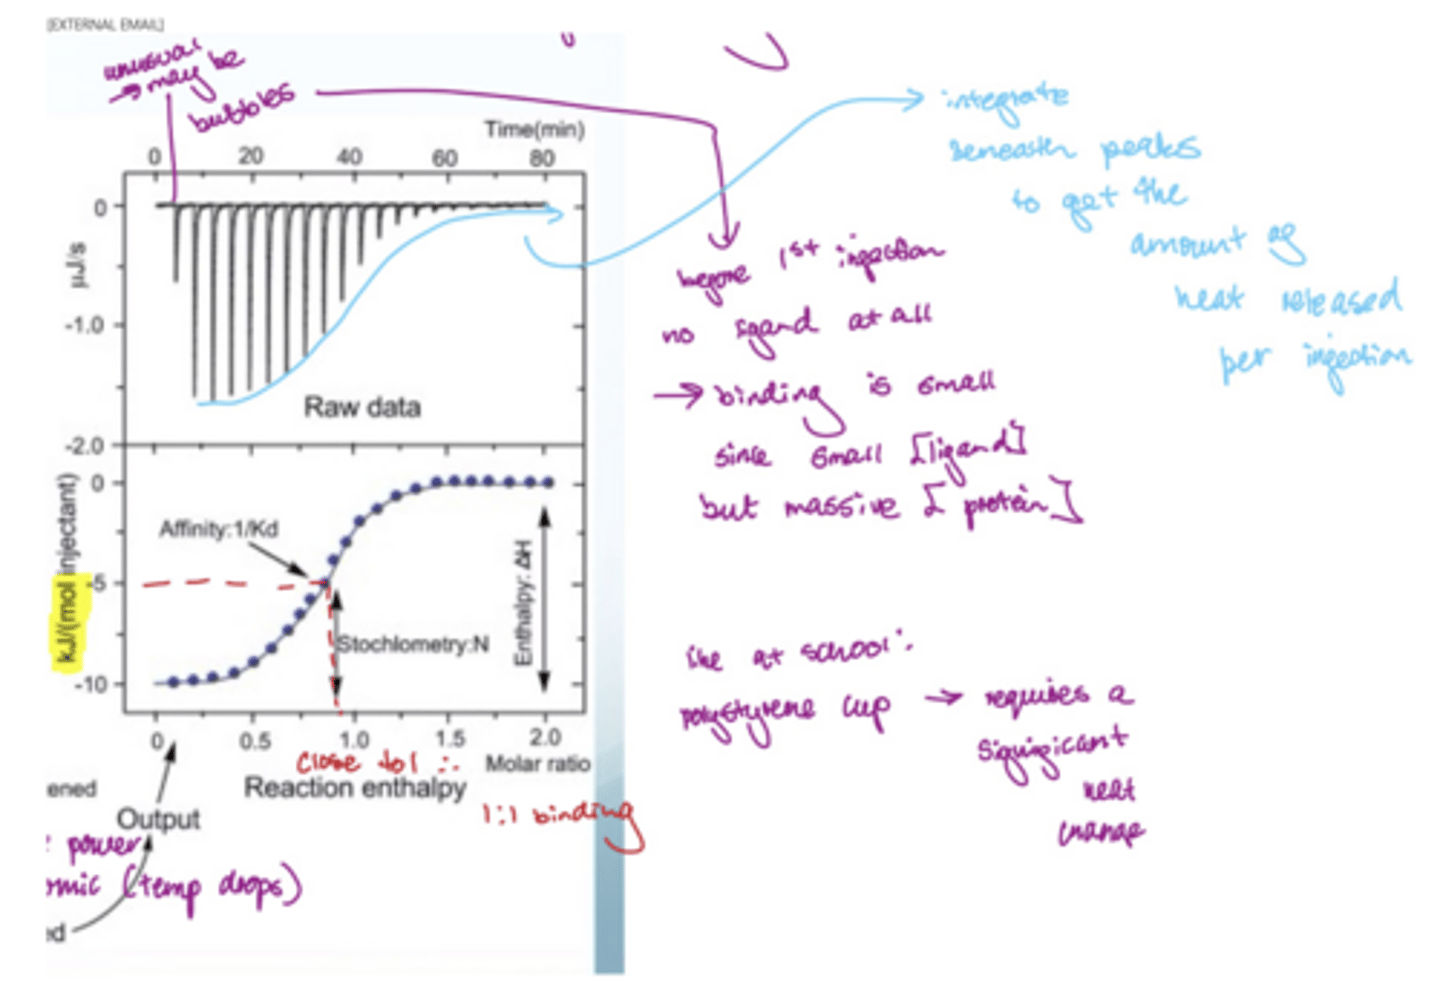 [EXTERNAL EMAIL]
unusual
→ may be
bubbles
Time(min)
0 20 40 60 80
0
-1.0
-2.0
µJ/s
Raw data
0
-5
-10
kJ/(mol injectant)
Affinity:1/Kd
Stochlometry:N
Enthalpy: ΔH
0 0.5 1.0 1.5 2.0
Molar ratio
close to 1 ∴
1:1 binding
Reaction enthalpy
ened
Output
power
omic (temp drops)
ed
integrate
beneath peaks
to get the
amount of
heat released
per injection
before 1st injection
no ligand at all
→ binding is small
since small [ligand]
but massive [protein]
like at school:
polystyrene cup → requires a
significant
heat
change